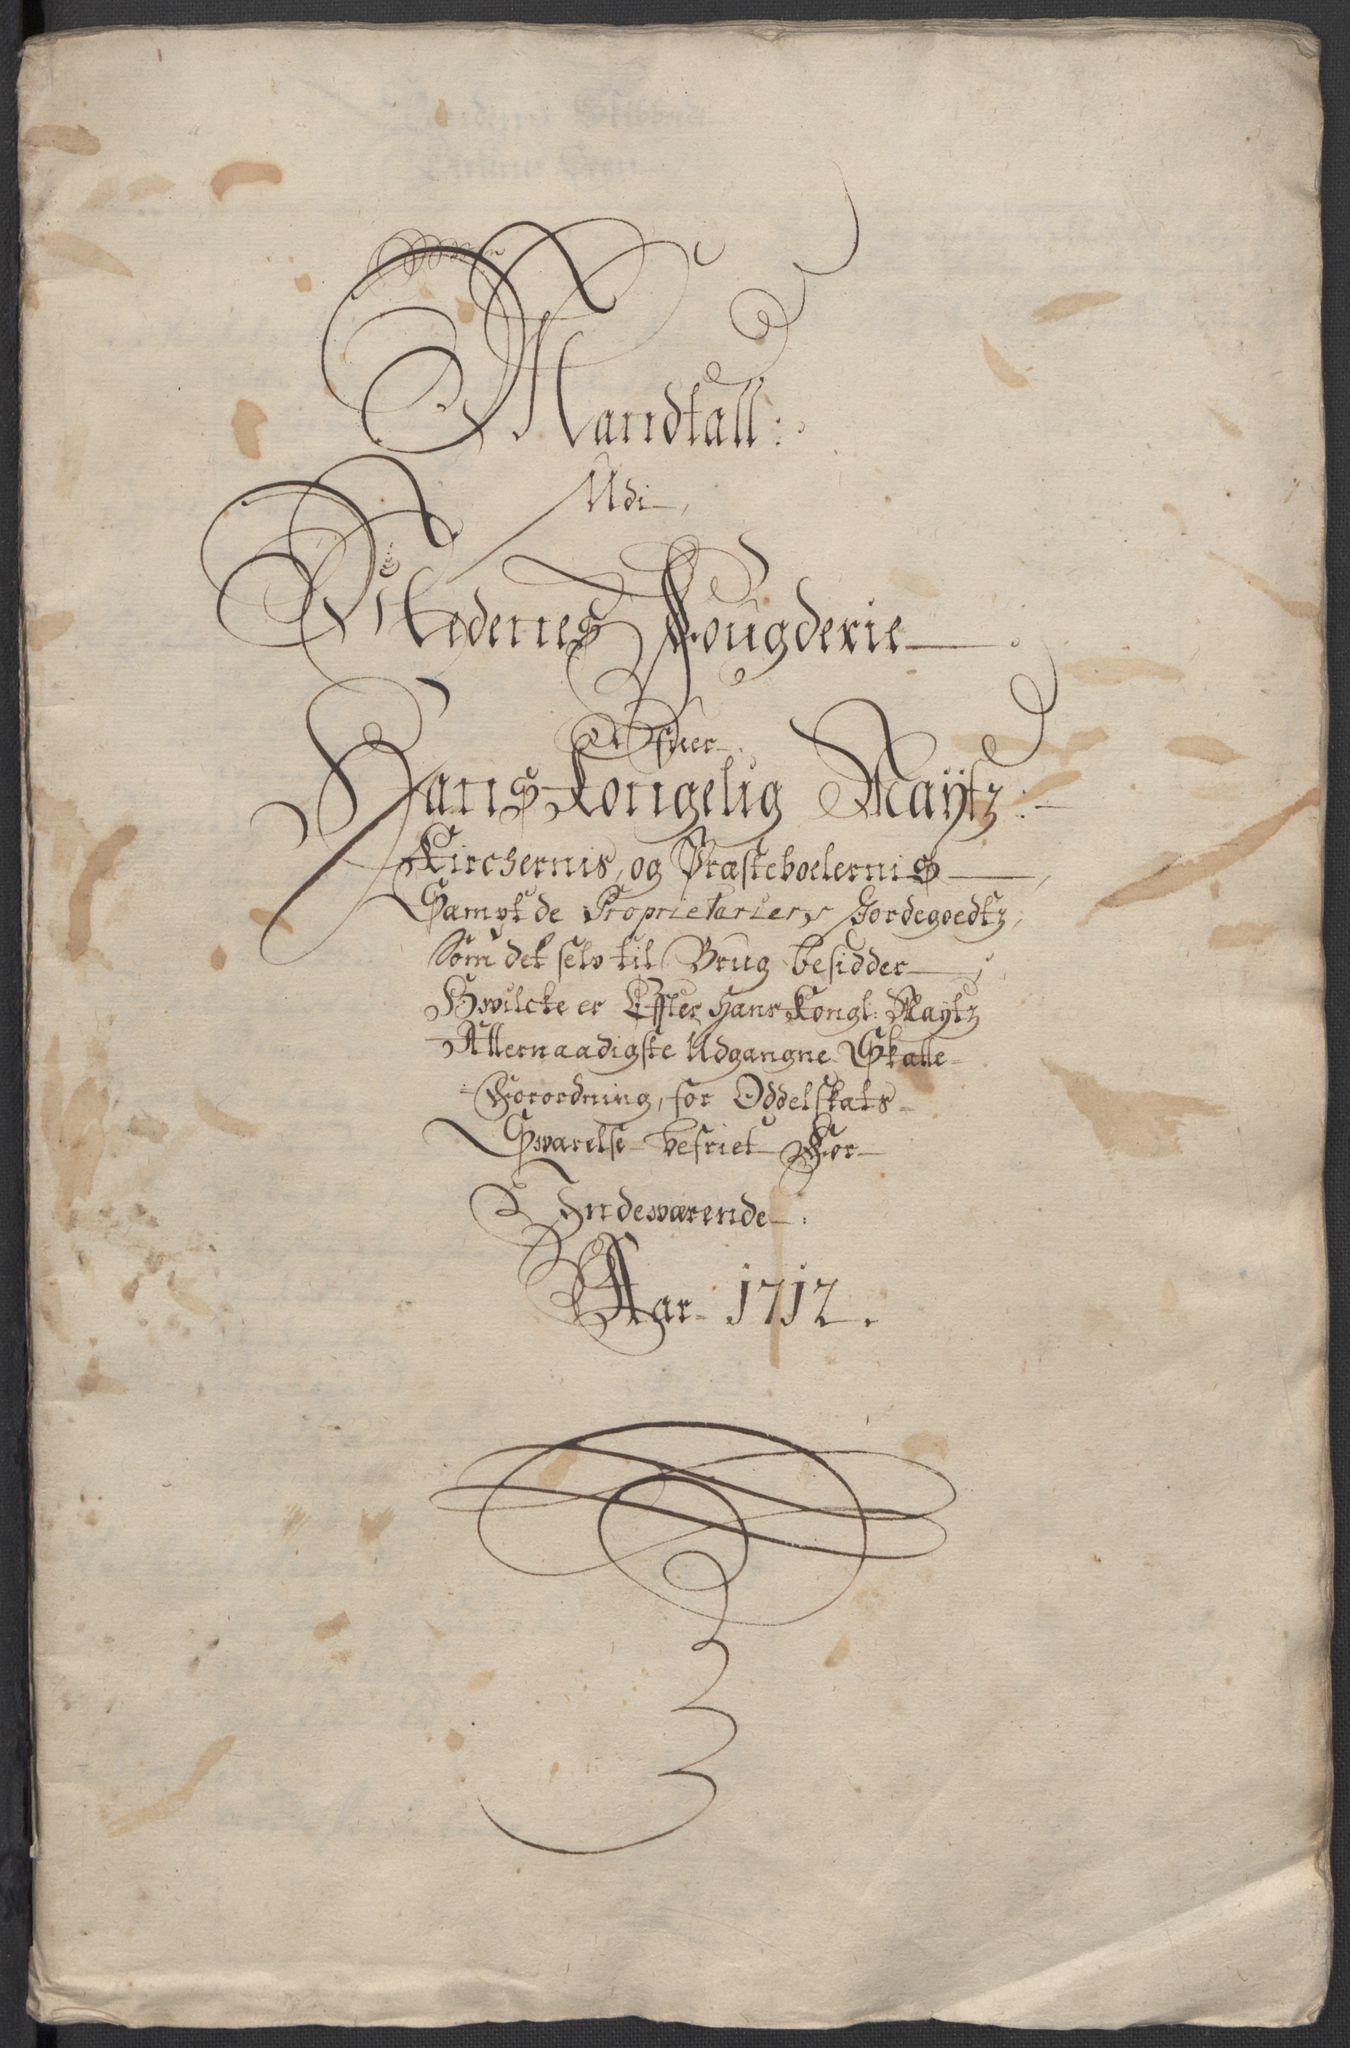 Mandtall:
Udi
Nedenes Fougderie
Ofuer
Hans Kongelig Maytz:
Kirchernis, og Præsteboelernis
Sampt de Proprietariers Jordegoedtz,
Som det selv til Brug besidder
Hvilcke er Effter Hans Kongl: Maytz
Allernaadigste Udgangne Skatte-
Forordning, for Oddelskats-
Svarelse befriet For
Indeværende
Aar 1712.